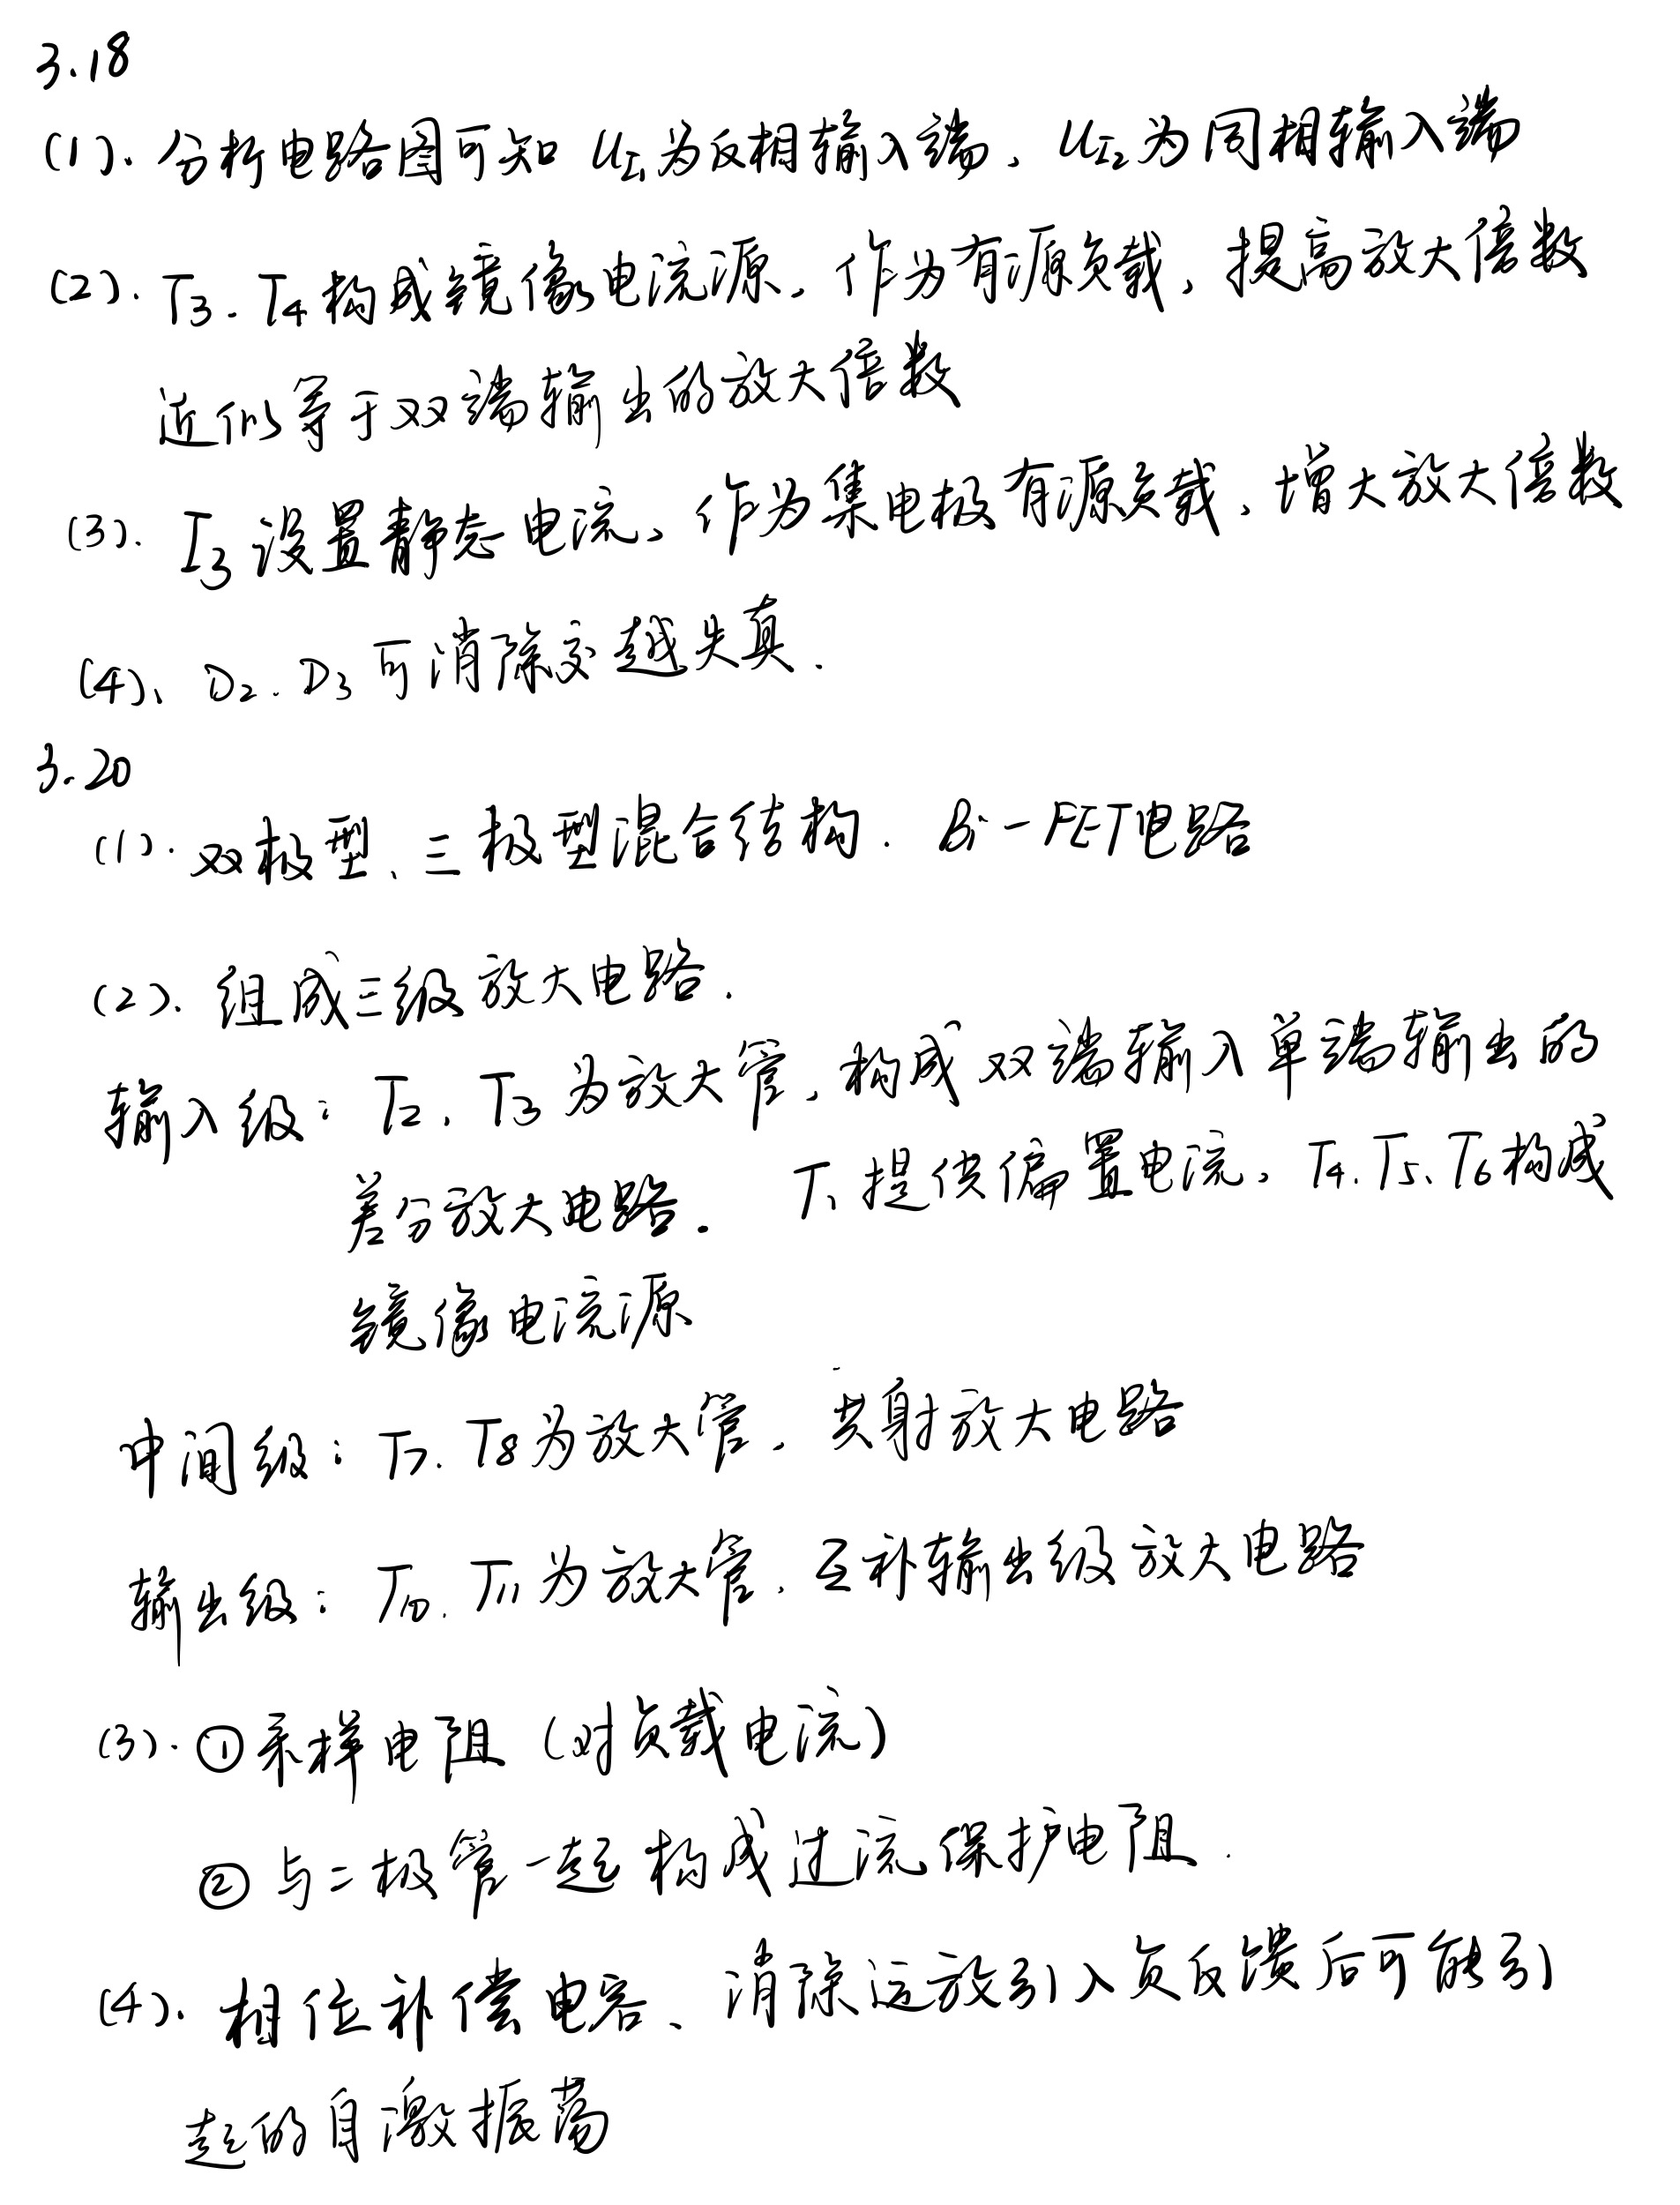 3.18
(1)、分析电路图可知 UI1为反相输入端、UI2为同相输入端
(2)、T3、T4构成镜像电流源、作为有源负载、提高放大倍数
近似等于双端输出的放大倍数
(3)、I3设置静态电流、作为集电极有源负载、增大放大倍数
(4)、D2、D3可消除交越失真.
3.20
(1)、双极型、三极型混合结构. Bi-FET电路
(2)、组成三级放大电路.
输入级: T2、T3为放大管、构成双端输入单端输出的
差分放大电路. T1提供偏置电流、T4、T5、T6构成
镜像电流源
中间级: T7、T8为放大管、共射放大电路
输出级: T10、T11为放大管、互补输出级放大电路
(3)、①采样电阻(对负载电流)
②与二极管一起构成过流保护电阻.
(4)、相位补偿电容、消除运放引入负反馈后可能引
起的自激振荡